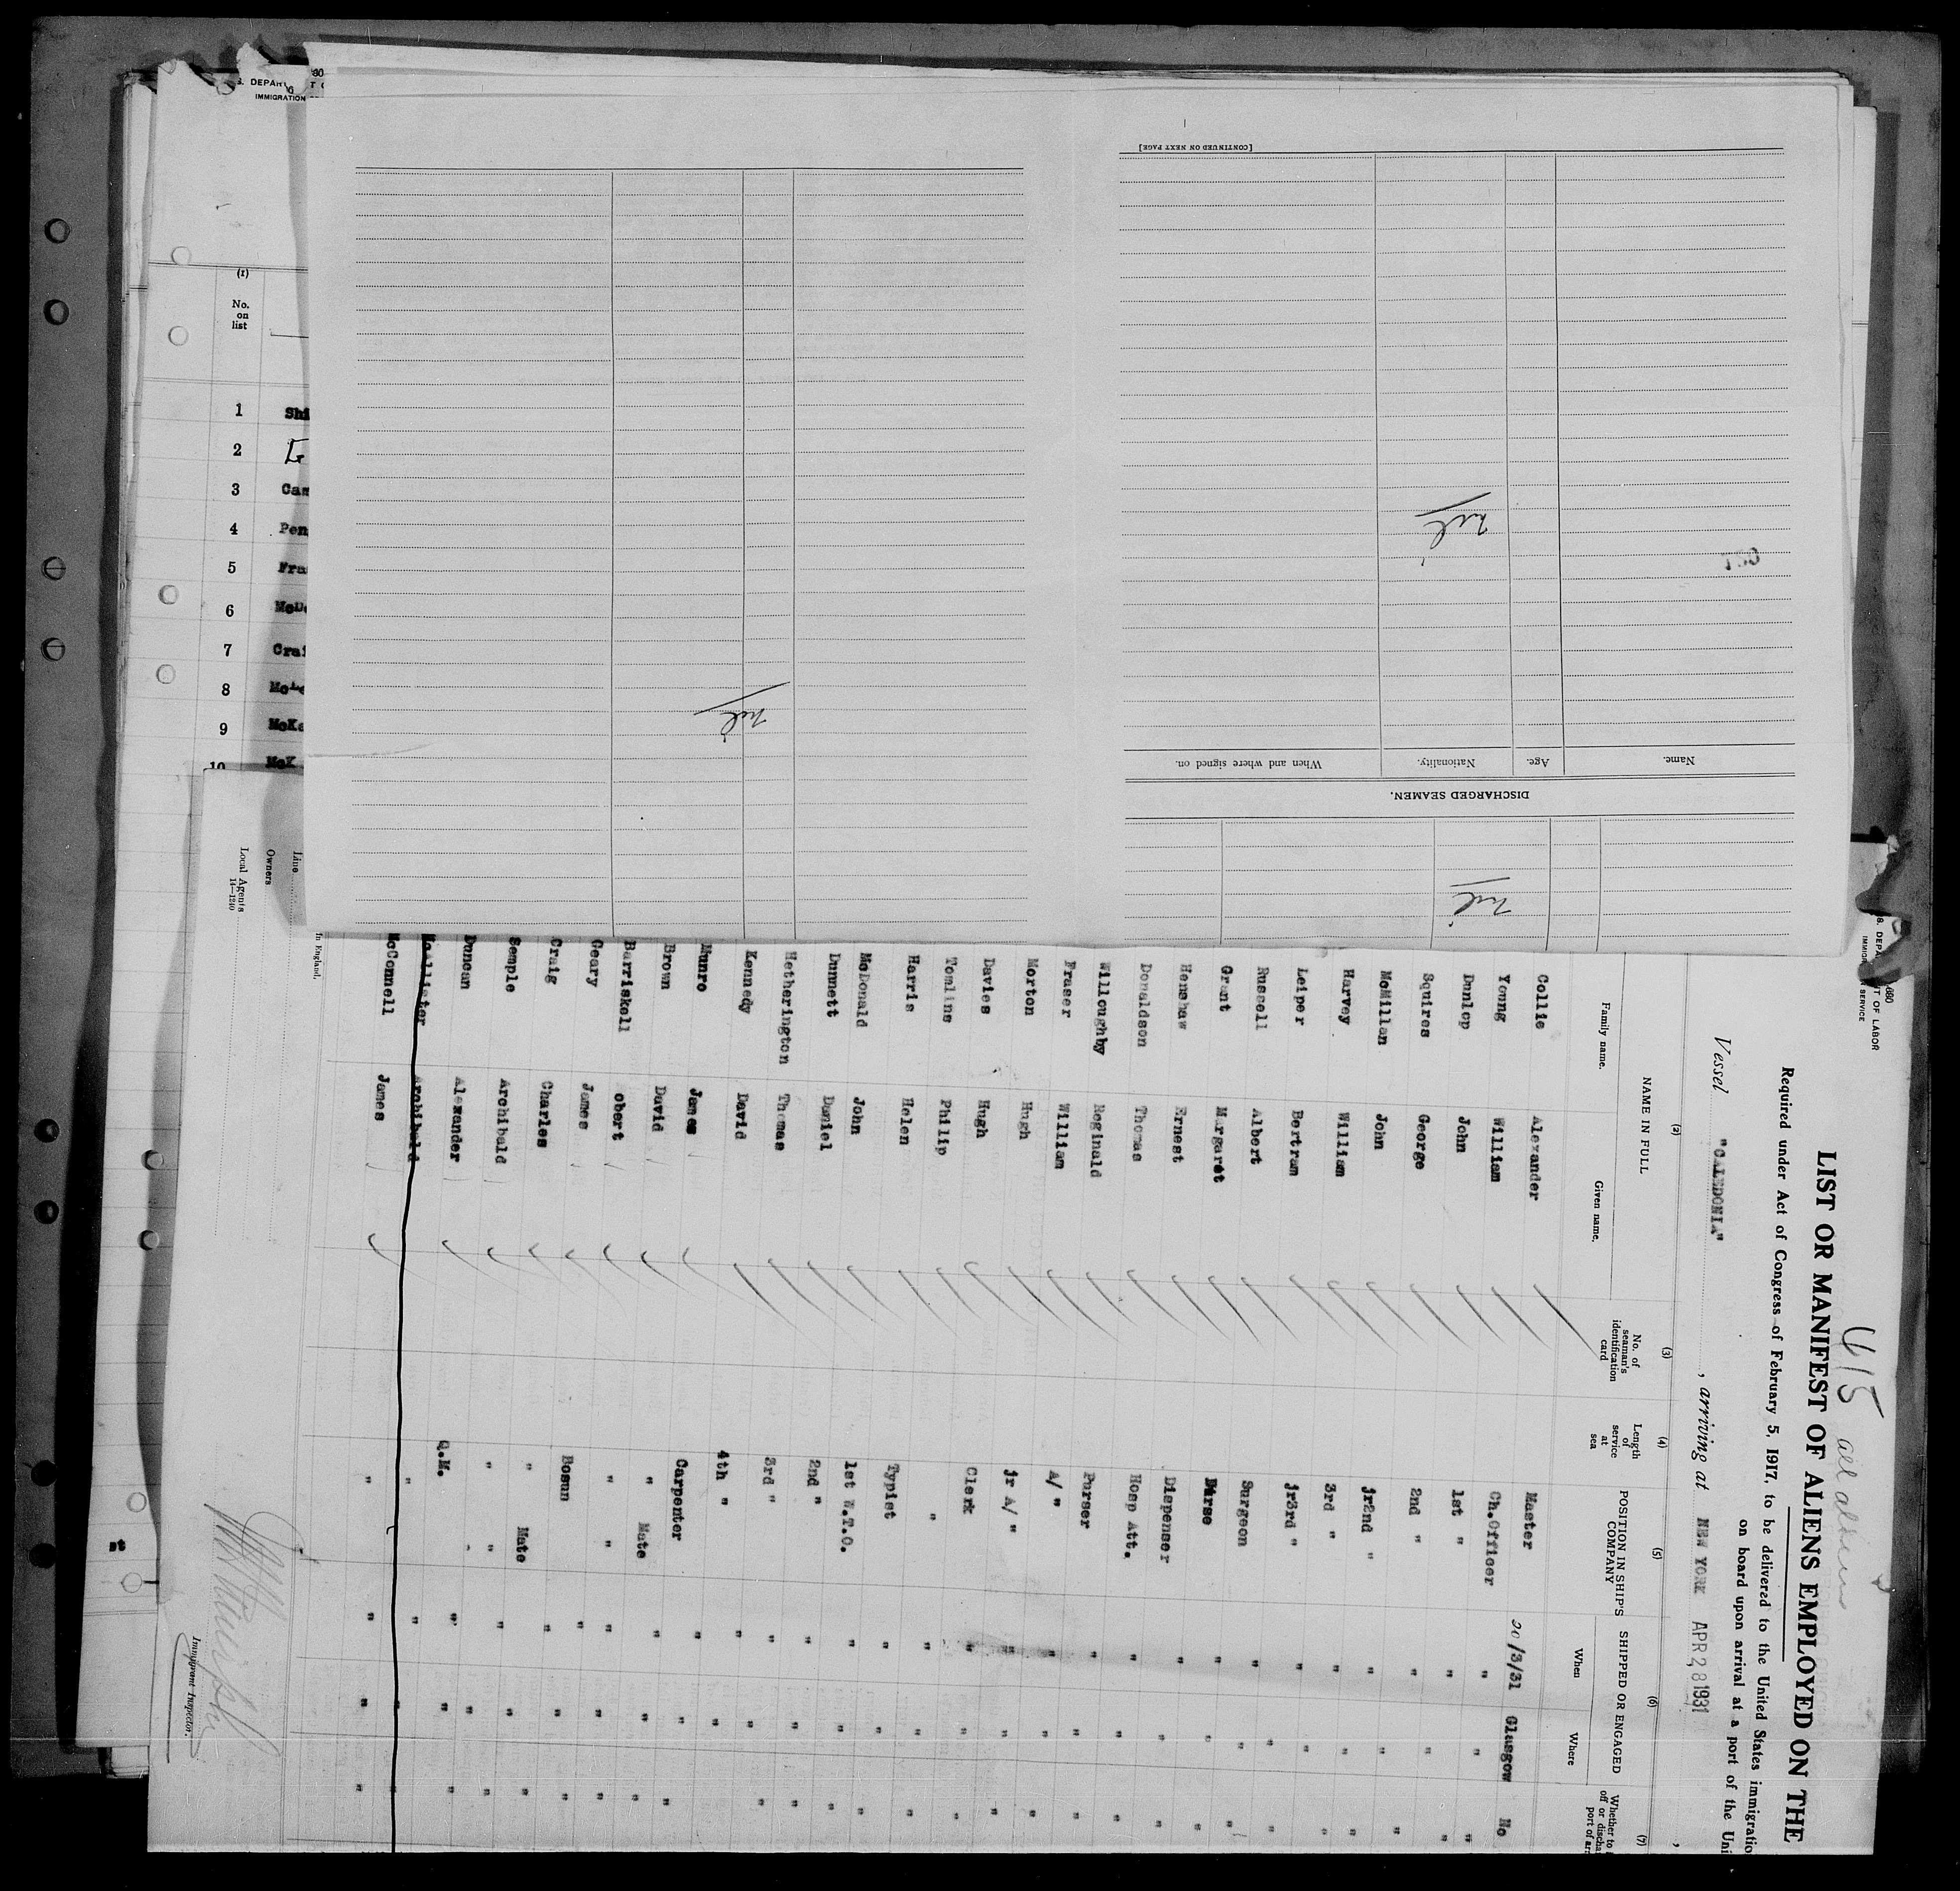 S. DEPAR
IMMIGRATION
(1)
No.
on
list
1 Shi
2
3 Cam
4 Pen
5 Fra
6 McDo
7 Crai
8
9 McKa
10 McK
[CONTINUED ON NEXT PAGE]
nil
nil
Name. Age. Nationality. When and where signed on.
DISCHARGED SEAMEN.
nil
680
S. DEPA T OF LABOR
IMMIGR SERVICE
615 all aliens
LIST OR MANIFEST OF ALIENS EMPLOYED ON THE
Required under Act of Congress of February 5, 1917, to be delivered to the United States immigratio
on board upon arrival at a port of the Uni
Vessel "CALEDONIA" , arriving at NEW YORK APR 28 1931 ,
(2) (3) (4) (5) (6) (7)
NAME IN FULL
Family name. Given name.
No. of seaman's identification card
Length of service at sea
POSITION IN SHIP'S COMPANY
SHIPPED OR ENGAGED
When Where
Whether to
off or discha
port of arr
Collie Alexander Master 20/3/31 Glasgow No
Young William Ch.Officer " " "
Dunlop John 1st " " " "
Squires George 2nd " " " "
McMillan John jr2nd " " " "
Harvey William 3rd " " " "
Leiper Bertram jr3rd " " " "
Russell Albert Surgeon " " "
Grant Margaret Nurse " " "
Henshaw Ernest Dispenser " " "
Donaldson Thomas Hosp Att. " " "
Willoughby Reginald Purser " " "
Fraser William A/ " " " "
Morton Hugh jr A/ " " " "
Davies Hugh Clerk " " "
Tomlins Philip " " " "
Harris Helen Typist " " "
McDonald John 1st W.T.O. " " "
Dunnett Daniel 2nd " " " "
Hetherington Thomas 3rd " " " "
Kennedy David 4th " " " "
Munro James Carpenter " " "
Brown David " Mate " " "
Barriskell obert " " " " "
Geary James Bosun " " "
Craig Charles " Mate " " "
Semple Archibald " " " " "
Duncan Alexander Q.M. " " "
McAllister Archibald " " " "
McConnell James " " " "
in England.
Line
Owners
Local Agents
14—1240
Immigrant Inspector.
st